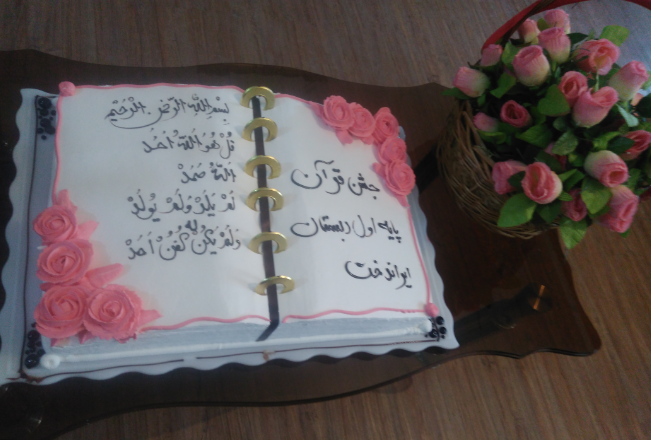 بِسْمِ اللَّهِ الرَّحْمنِ الرَّحیمِ
قُلْ هُوَ اللَّهُ أَحَدٌ
اَللَّهُ صَمَدْ
لَمْ یَلِدْ وَلَمْ یُولَدْ
وَلَمْ یَکُنْ لَهُ کُفُنْ اَحَدْ
جشن قرآن
پایه اول دبستان
ایراندخت